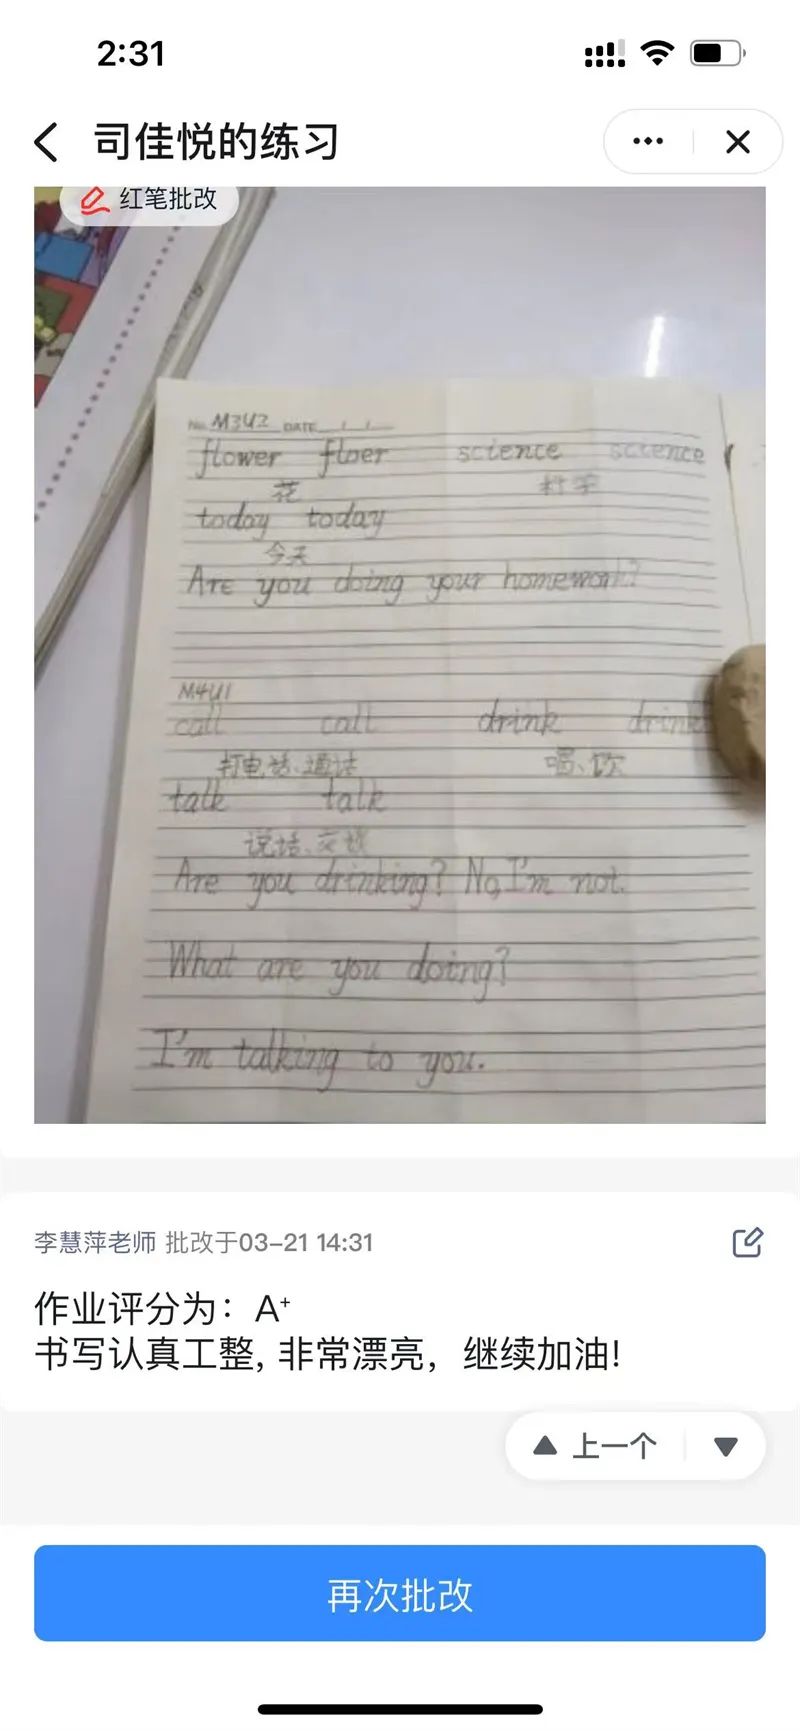 2:31
司佳悦的练习
红笔批改
No. M3U2 DATE
flower floer science science
花 科学
today today
今天
Are you doing your homework?
M4U1
call call drink drink
打电话、通话 喝、饮
talk talk
说话、交谈
Are you drinking? No, I'm not.
What are you doing?
I'm talking to you.
李慧萍老师 批改于03-21 14:31
作业评分为：A⁺
书写认真工整, 非常漂亮，继续加油!
上一个
再次批改